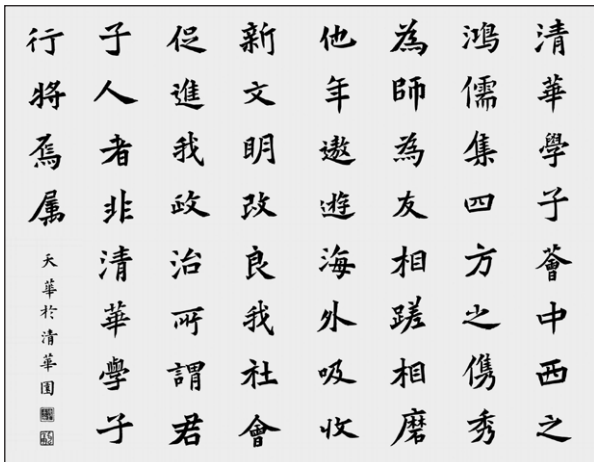 清華學子薈中西之
鴻儒集四方之儁秀
為師為友相蹉相磨
他年遨遊海外吸收
新文明改良我社會
促進我政治所謂君
子人者非清華學子
行將焉属
天華於清華園